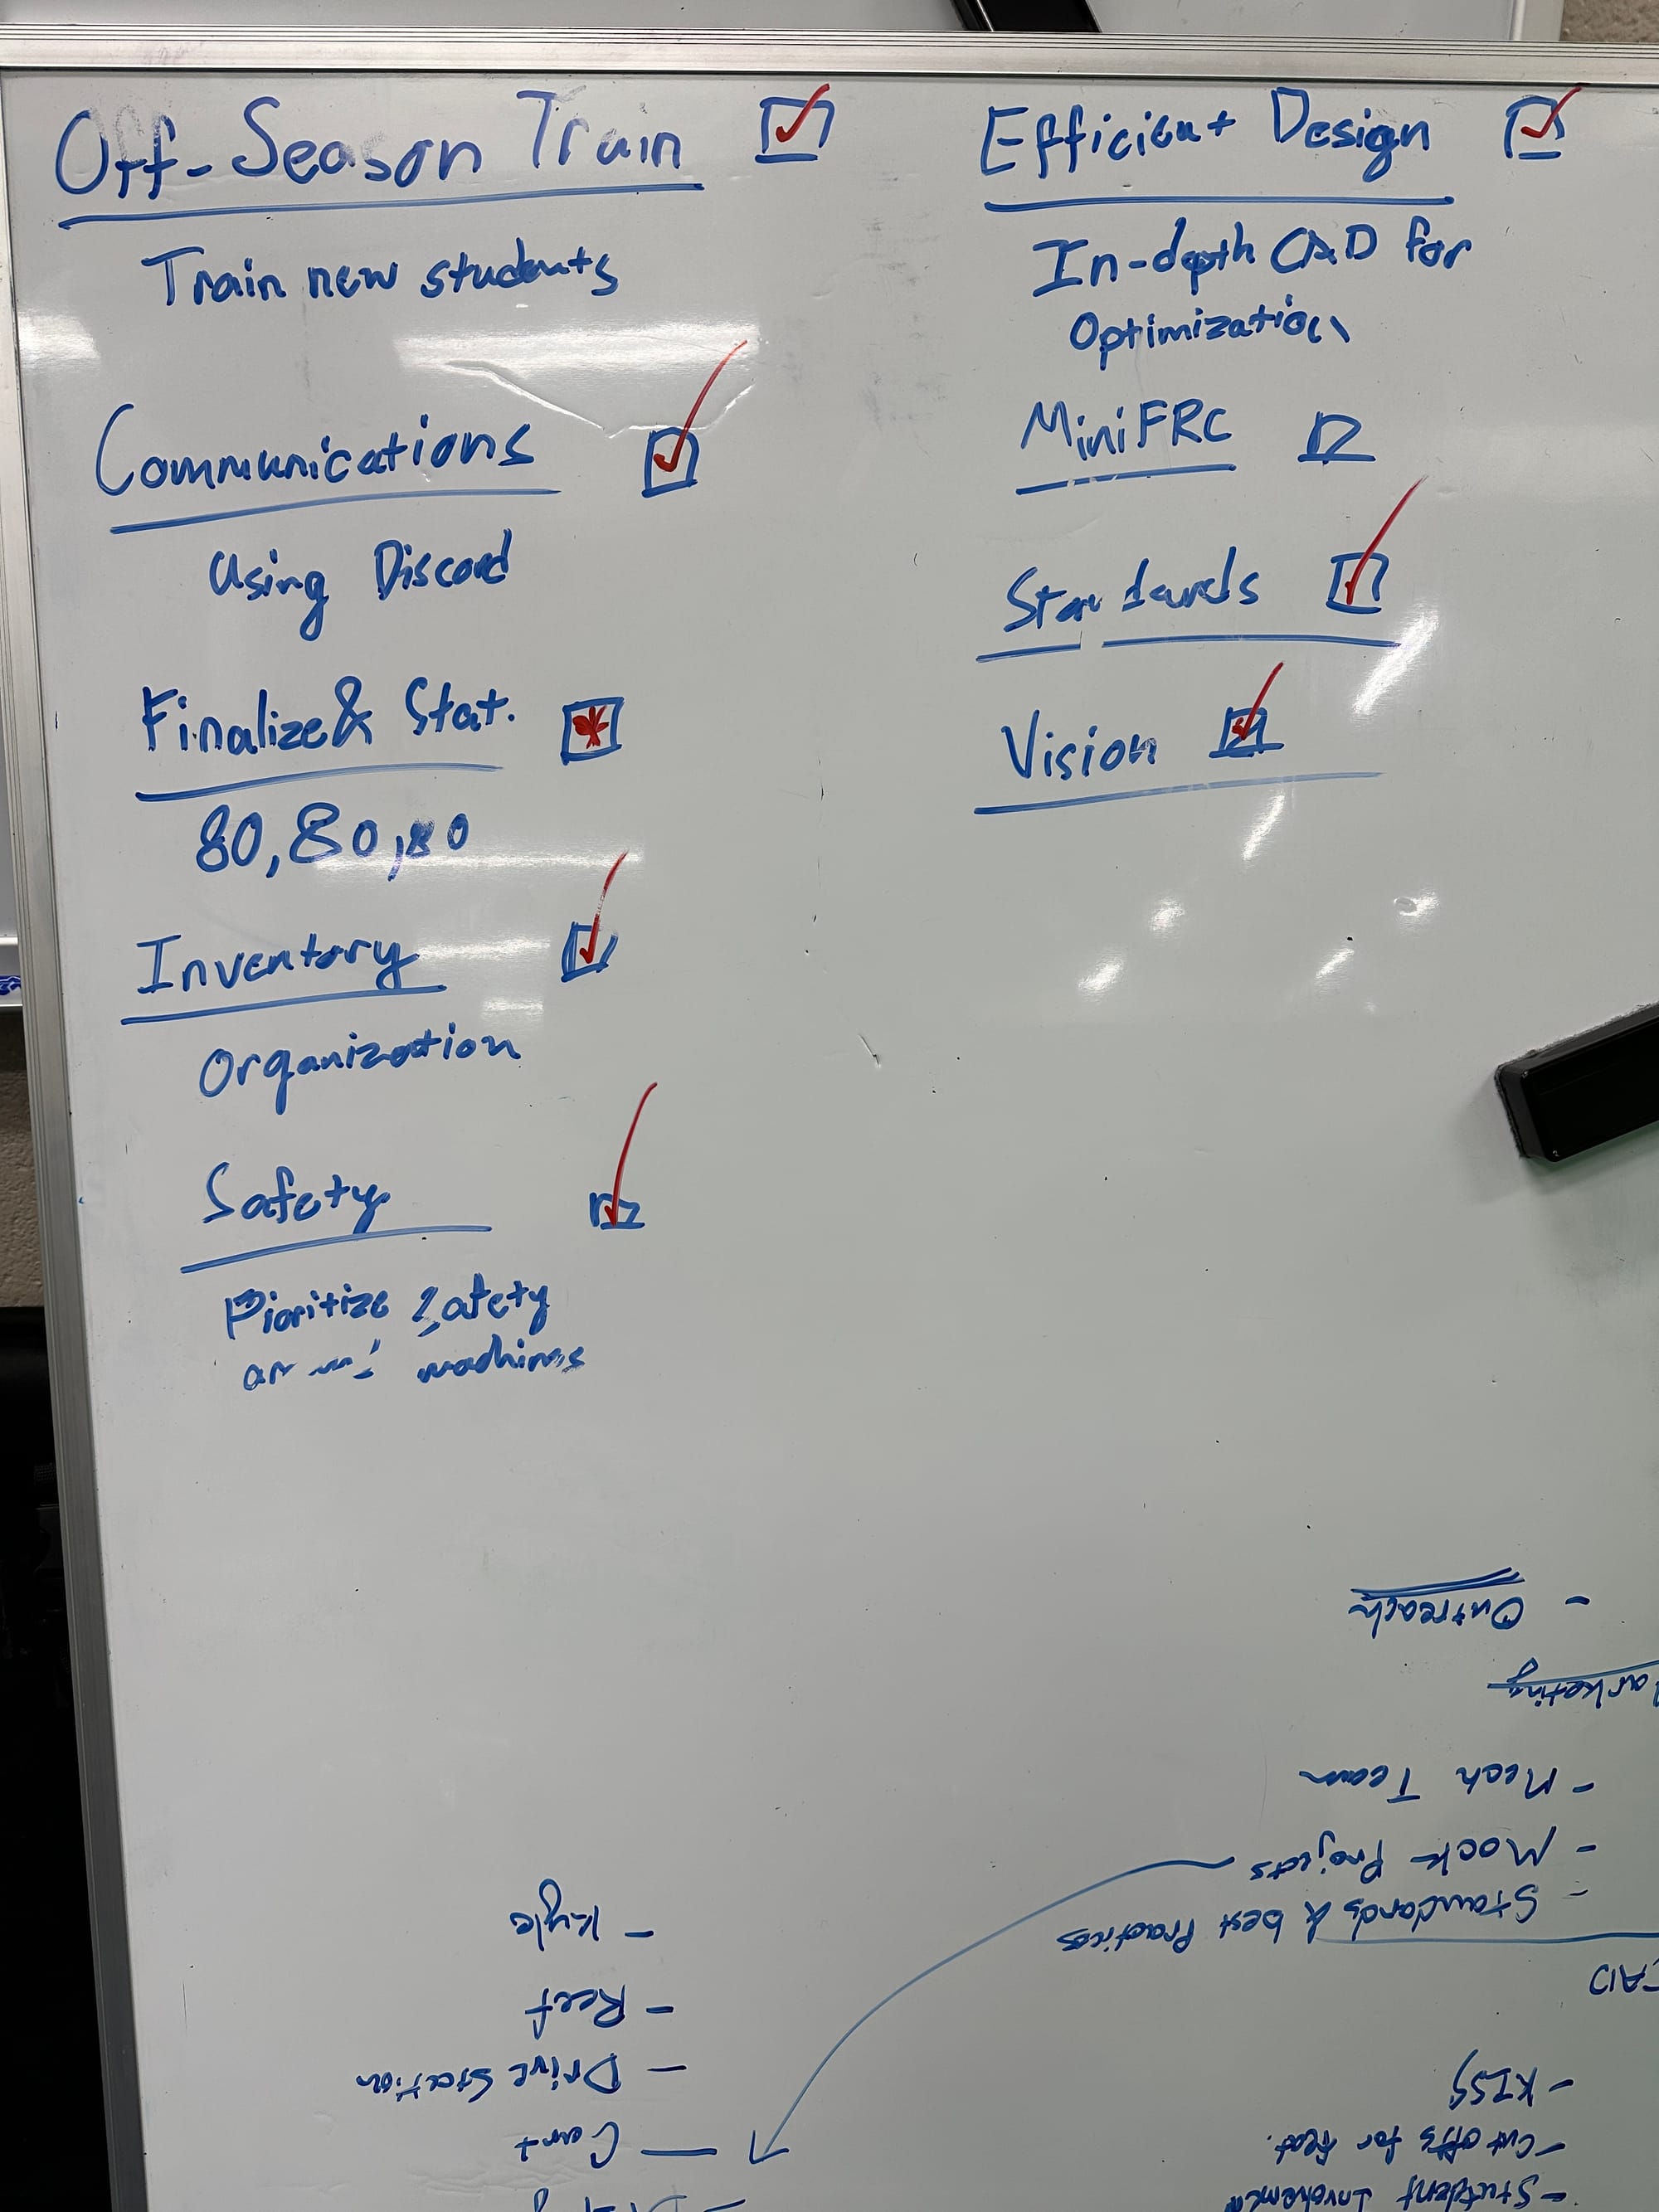 Off-Season Train
Train new students
Communications
Using Discord
Finalize & Stat.
80,80,80
Inventory
Organization
Safety
Pioritize Safety
machines
Efficient Design
In-depth CAD for
Optimization
MiniFRC
Standards
Vision
- Student Involvement
- Cut offs for feat.
- KISS
CAD
- Standards & best Practices
- Mock Projects
- Mech Team
arketing
- Outreach
— Cart
- Drive Station
- Reef
- Kyle